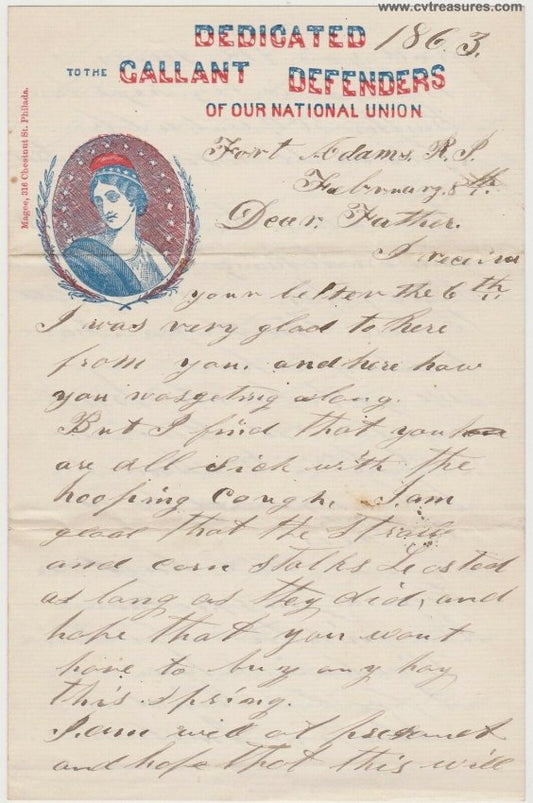 www.cvtreasures.com
DEDICATED 1863.
TO THE GALLANT DEFENDERS
OF OUR NATIONAL UNION
Magee, 316 Chestnut St. Philada.
Fort Adams, R.I.
February, 8th.
Dear, Father.
I receivd
your letter the 6th
I was very glad to here
from you. and here how
you wasgeting along.
But I find that you
are all sick with the
hooping Cough, I am
glad that the straw
and corn stalks Leosted
as long as they did, and
hope that you wount
have to buy any hay
this spring.
I.am well at presenet
and hope that this will